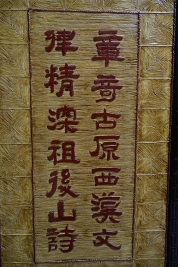 章奇古原西漢文
律精深祖後山詩